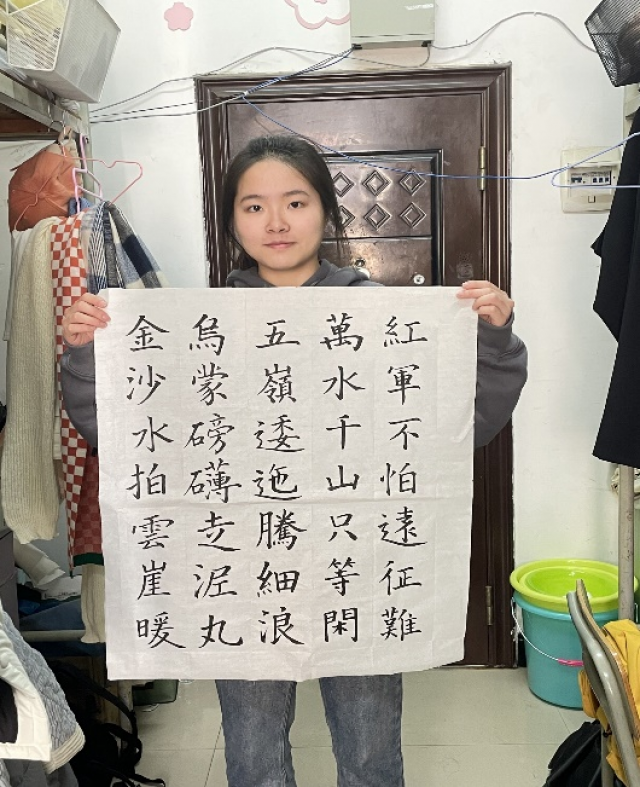 紅軍不怕遠征難
萬水千山只等閑
五嶺逶迤騰細浪
烏蒙磅礴走泥丸
金沙水拍雲崖暖